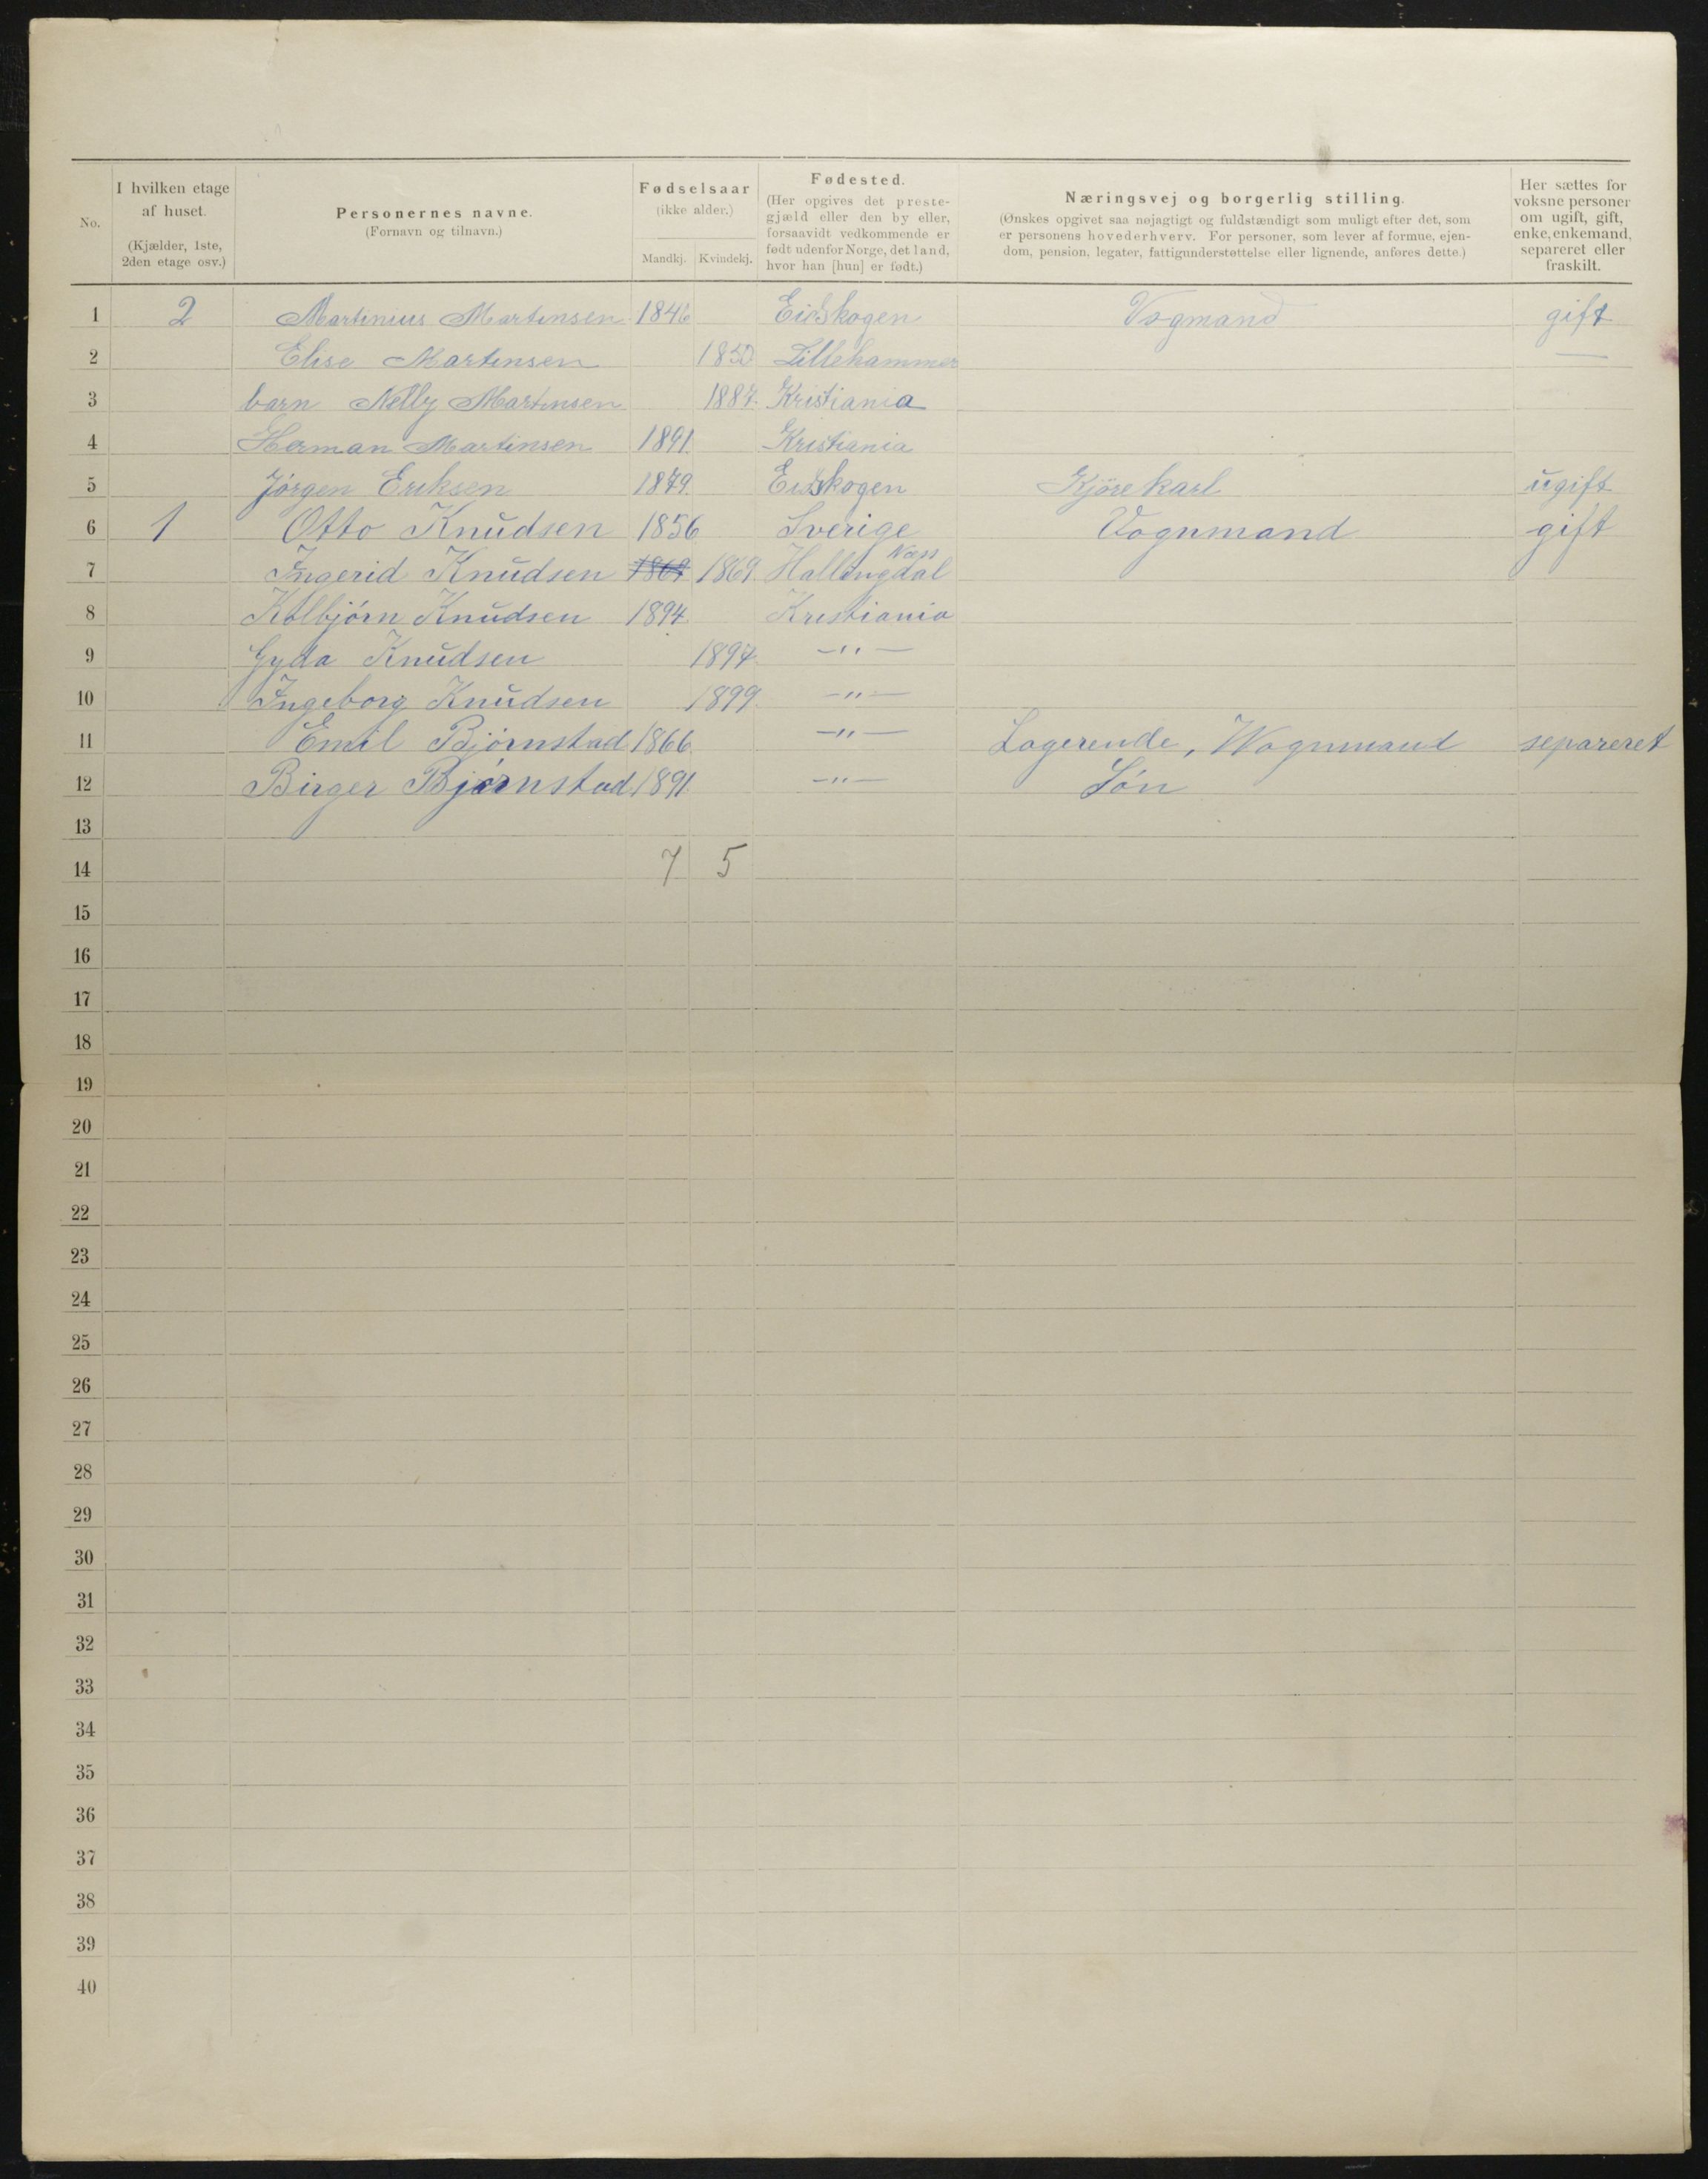 No.
I hvilken etage
af huset.
(Kjælder, 1ste,
2den etage osv.)
Personernes navne.
(Fornavn og tilnavn.)
Fødselsaar
(ikke alder.)
Mandkj. Kvindekj.
Fødested.
(Her opgives det preste-
gjæld eller den by eller,
forsaavidt vedkommende er
født udenfor Norge, det land,
hvor han [hun] er født.)
Næringsvej og borgerlig stilling.
(Ønskes opgivet saa nøjagtigt og fuldstændigt som muligt efter det, som
er personens hovederhverv. For personer, som lever af formue, ejen-
dom, pension, legater, fattigunderstøttelse eller lignende, anføres dette.)
Her sættes for
voksne personer
om ugift, gift,
enke, enkemand,
separeret eller
fraskilt.
1 2 Martinius Martinsen 1846 Eidskogen Vogmand gift
2 Elise Martensen 1850 Lillehammer —
3 barn Nelly Martinsen 1887. Kristiania
4 Herman Martinsen 1891. Kristiania
5 Jörgen Eriksen 1879. Eidskogen Kjörekarl ugift
6 1 Otto Knudsen 1856 Sverige Vognmand gift
7 Ingerid Knudsen 1869 1869. Hallingdal Næss
8 Kolbjörn Knudsen 1894. Kristiania
9 Gyda Knudsen 1897. —"—
10 Ingeborg Knudsen 1899. —"—
11 Emil Bjørnstad 1866. —"— Logerende, Wognmand separeret
12 Birger Bjørnstad 1891. —"— Sön
13
14 7 5
15
16
17
18
19
20
21
22
23
24
25
26
27
28
29
30
31
32
33
34
35
36
37
38
39
40